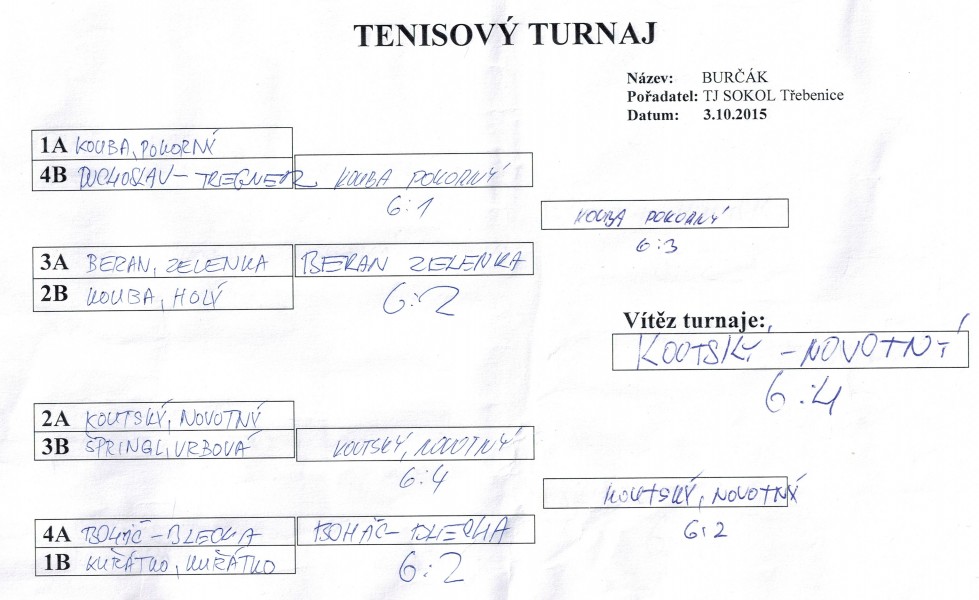 TENISOVÝ TURNAJ
Název: BURČÁK
Pořadatel: TJ SOKOL Třebenice
Datum: 3.10.2015
1A KOUBA, POKORNÝ
4B DUCHOSLAV - TREGNER KOUBA POKORNÝ
6:1
KOUBA POKORNÝ
6:3
3A BERAN, ZELENKA BERAN ZELENKA
2B KOUBA, HOLÝ
6:2
Vítěz turnaje:
KOUTSKÝ - NOVOTNÝ
6:4
2A KOUTSKÝ, NOVOTNÝ
3B ŠPRINGL, VRBOVÁ KOUTSKÝ, NOVOTNÝ
6:4
KOUTSKÝ, NOVOTNÝ
6:2
4A BOHÁČ - BLECHA BOHÁČ - BLECHA
1B KUŘÁTKO, KUŘÁTKO
6:2